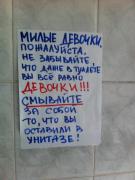 МИЛЫЕ ДЕВОЧКИ,
ПОЖАЛУЙСТА.
НЕ ЗАБЫВАЙТЕ,
ЧТО ДАЖЕ В ТУАЛЕТЕ
ВЫ ВСЁ РАВНО
ДЕВОЧКИ!!!
СМЫВАЙТЕ
ЗА СОБОЙ
ТО, ЧТО ВЫ
ОСТАВИЛИ В
УНИТАЗЕ!